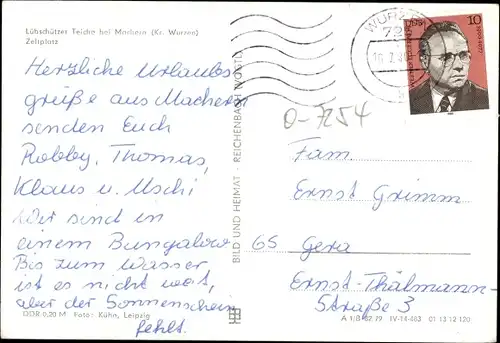 Lübschützer Teiche bei Machern (Kr. Wurzen)
Zeltplatz
Herzliche Urlaubs-
grüße aus Machern
senden Euch
Robby, Thomas,
Klaus u. Uschi
Wir sind in
einem Bungalow
Bis zum Wasser
ist es nicht weit,
aber der Sonnenschein
fehlt.
DDR 0,20 M Foto: Kühn, Leipzig
BILD UND HEIMAT · REICHENBACH (VOGTL)
WURZEN
10
DDR
O-7254
Fam
Ernst Grimm
65 Gera
Ernst-Thälmann-
Straße 3
A 1/B 67/79 IV-14-483 01 13 12 120